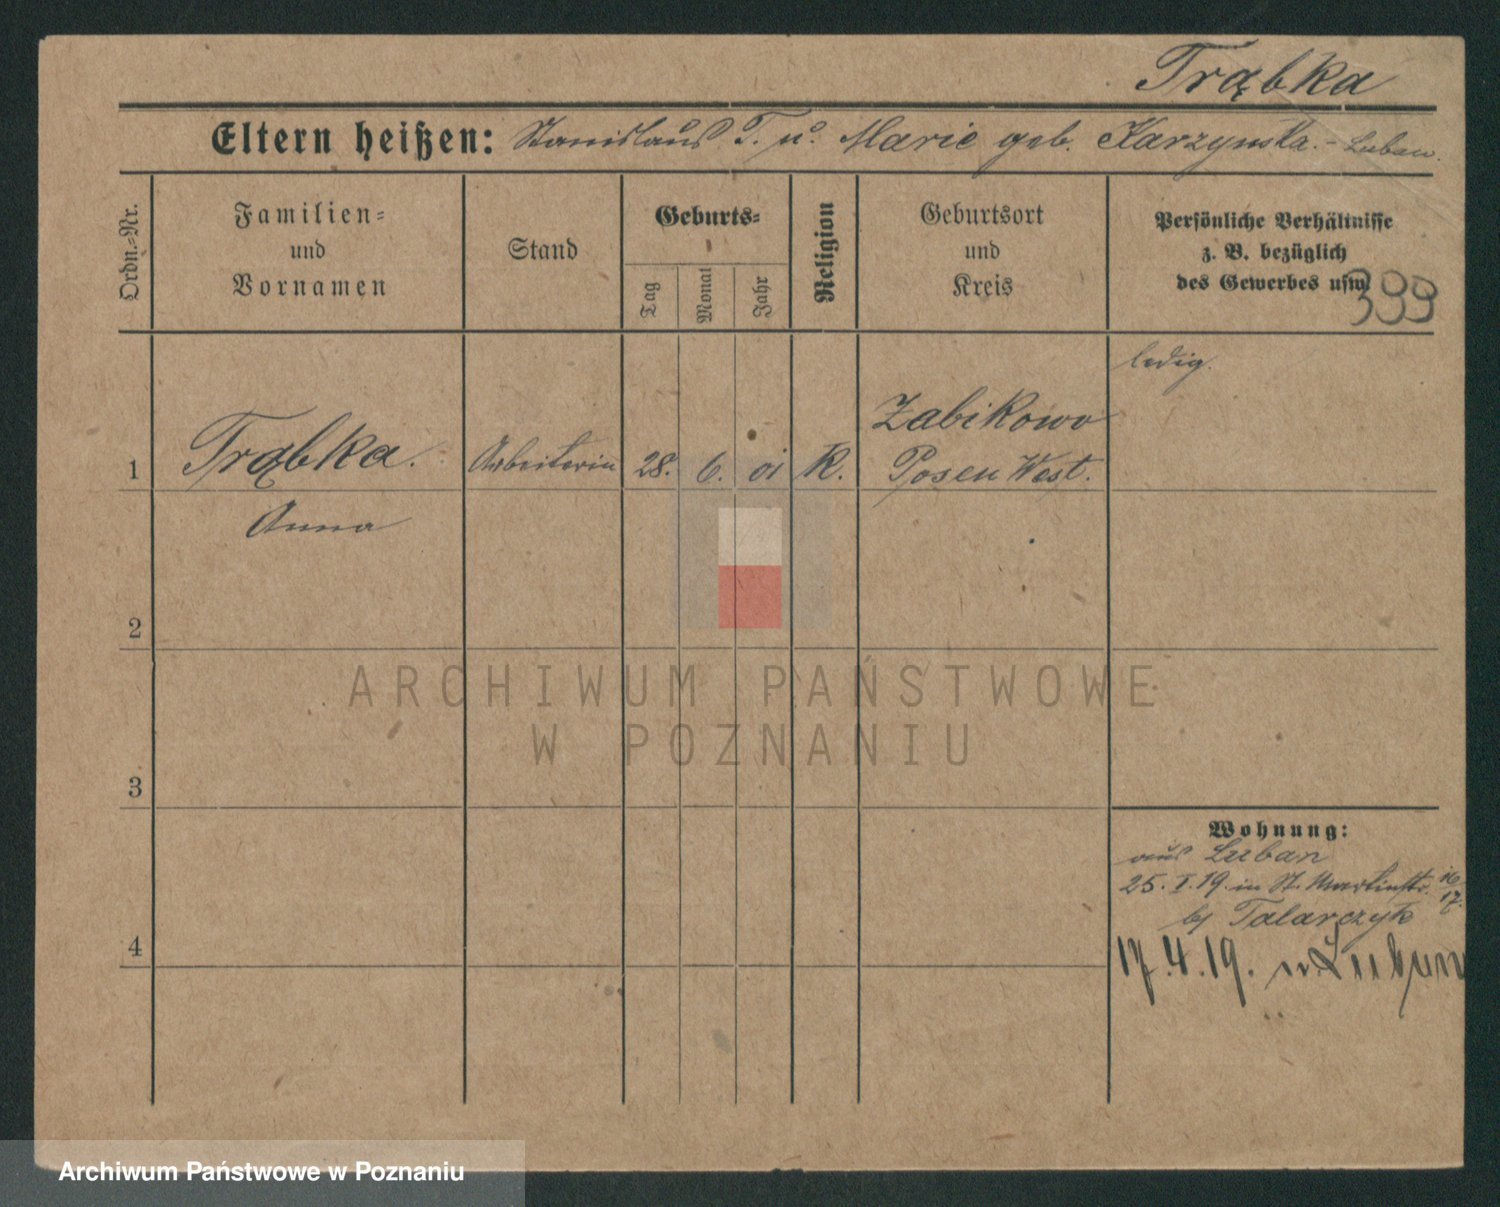 Trąbka
Eltern heißen: Stanislaus T. u. Marie geb. Karzynska. - Luban.
Ordn.=Nr.
Familien=
und
Vornamen
Stand
Geburts=
Tag
Monat
Jahr
Religion
Geburtsort
und
Kreis
Persönliche Verhältnisse
z. B. bezüglich
des Gewerbes usw.
399
ledig.
1 Trąbka. Arbeiterin 28. 6. 01 K. Zabikowo
Posen West.
Anna
2
3
4
Wohnung:
aus Luban
25. I. 19. in St. Martinstr. 16/17.
bj Talarczyk
17.4.19. n. Luban
ARCHIWUM PAŃSTWOWE
W POZNANIU
Archiwum Państwowe w Poznaniu